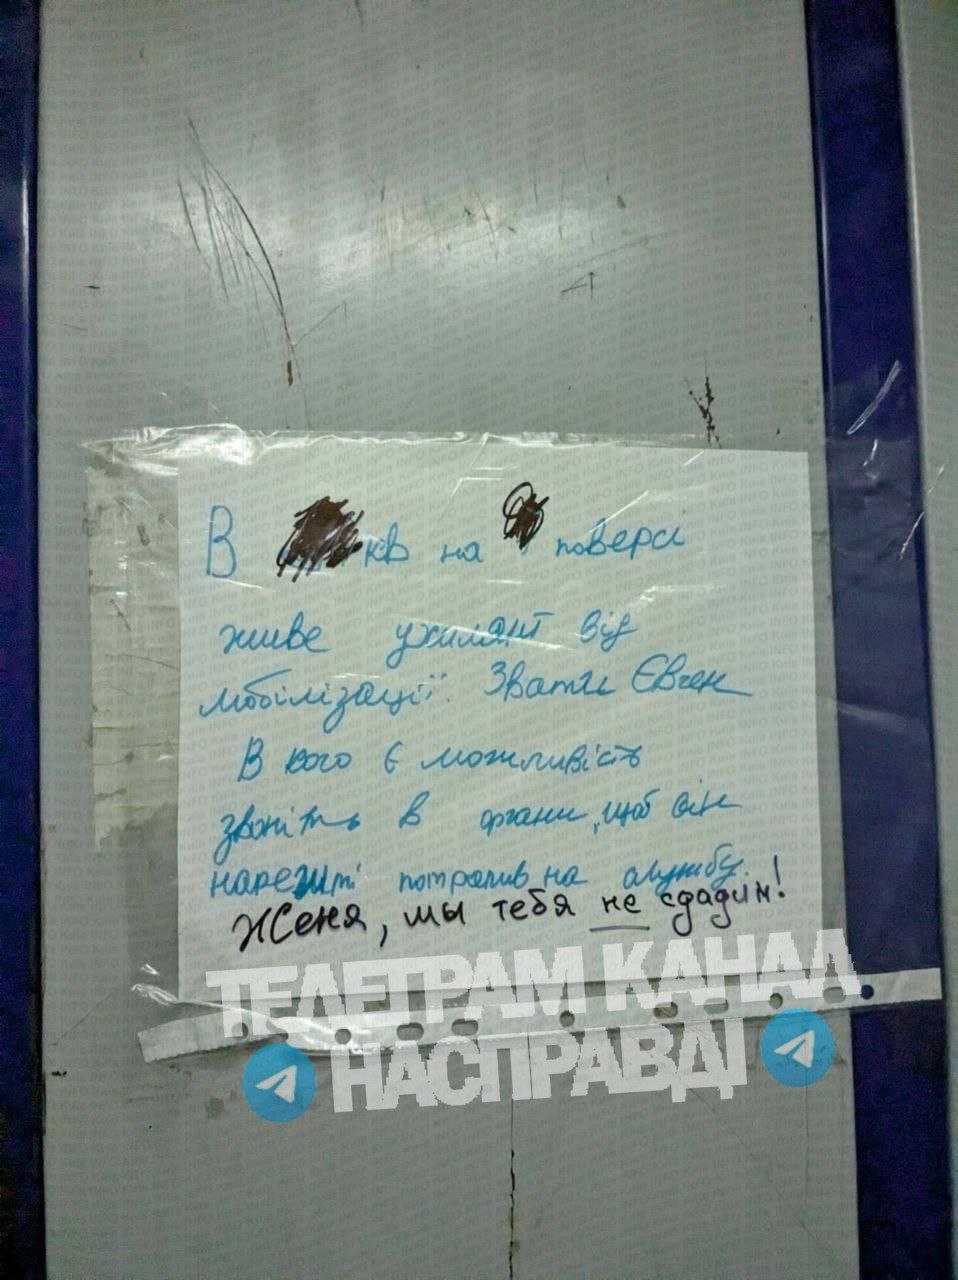 В кв на поверсі
живе ухилянт від
мобілізації. Звати Євген
В кого є можливість
звоніть в органи, щоб він
нарешті потрапив на службу.
Женя, мы тебя не сдадим!
ТЕЛЕГРАМ КАНАЛ
НАСПРАВДІ